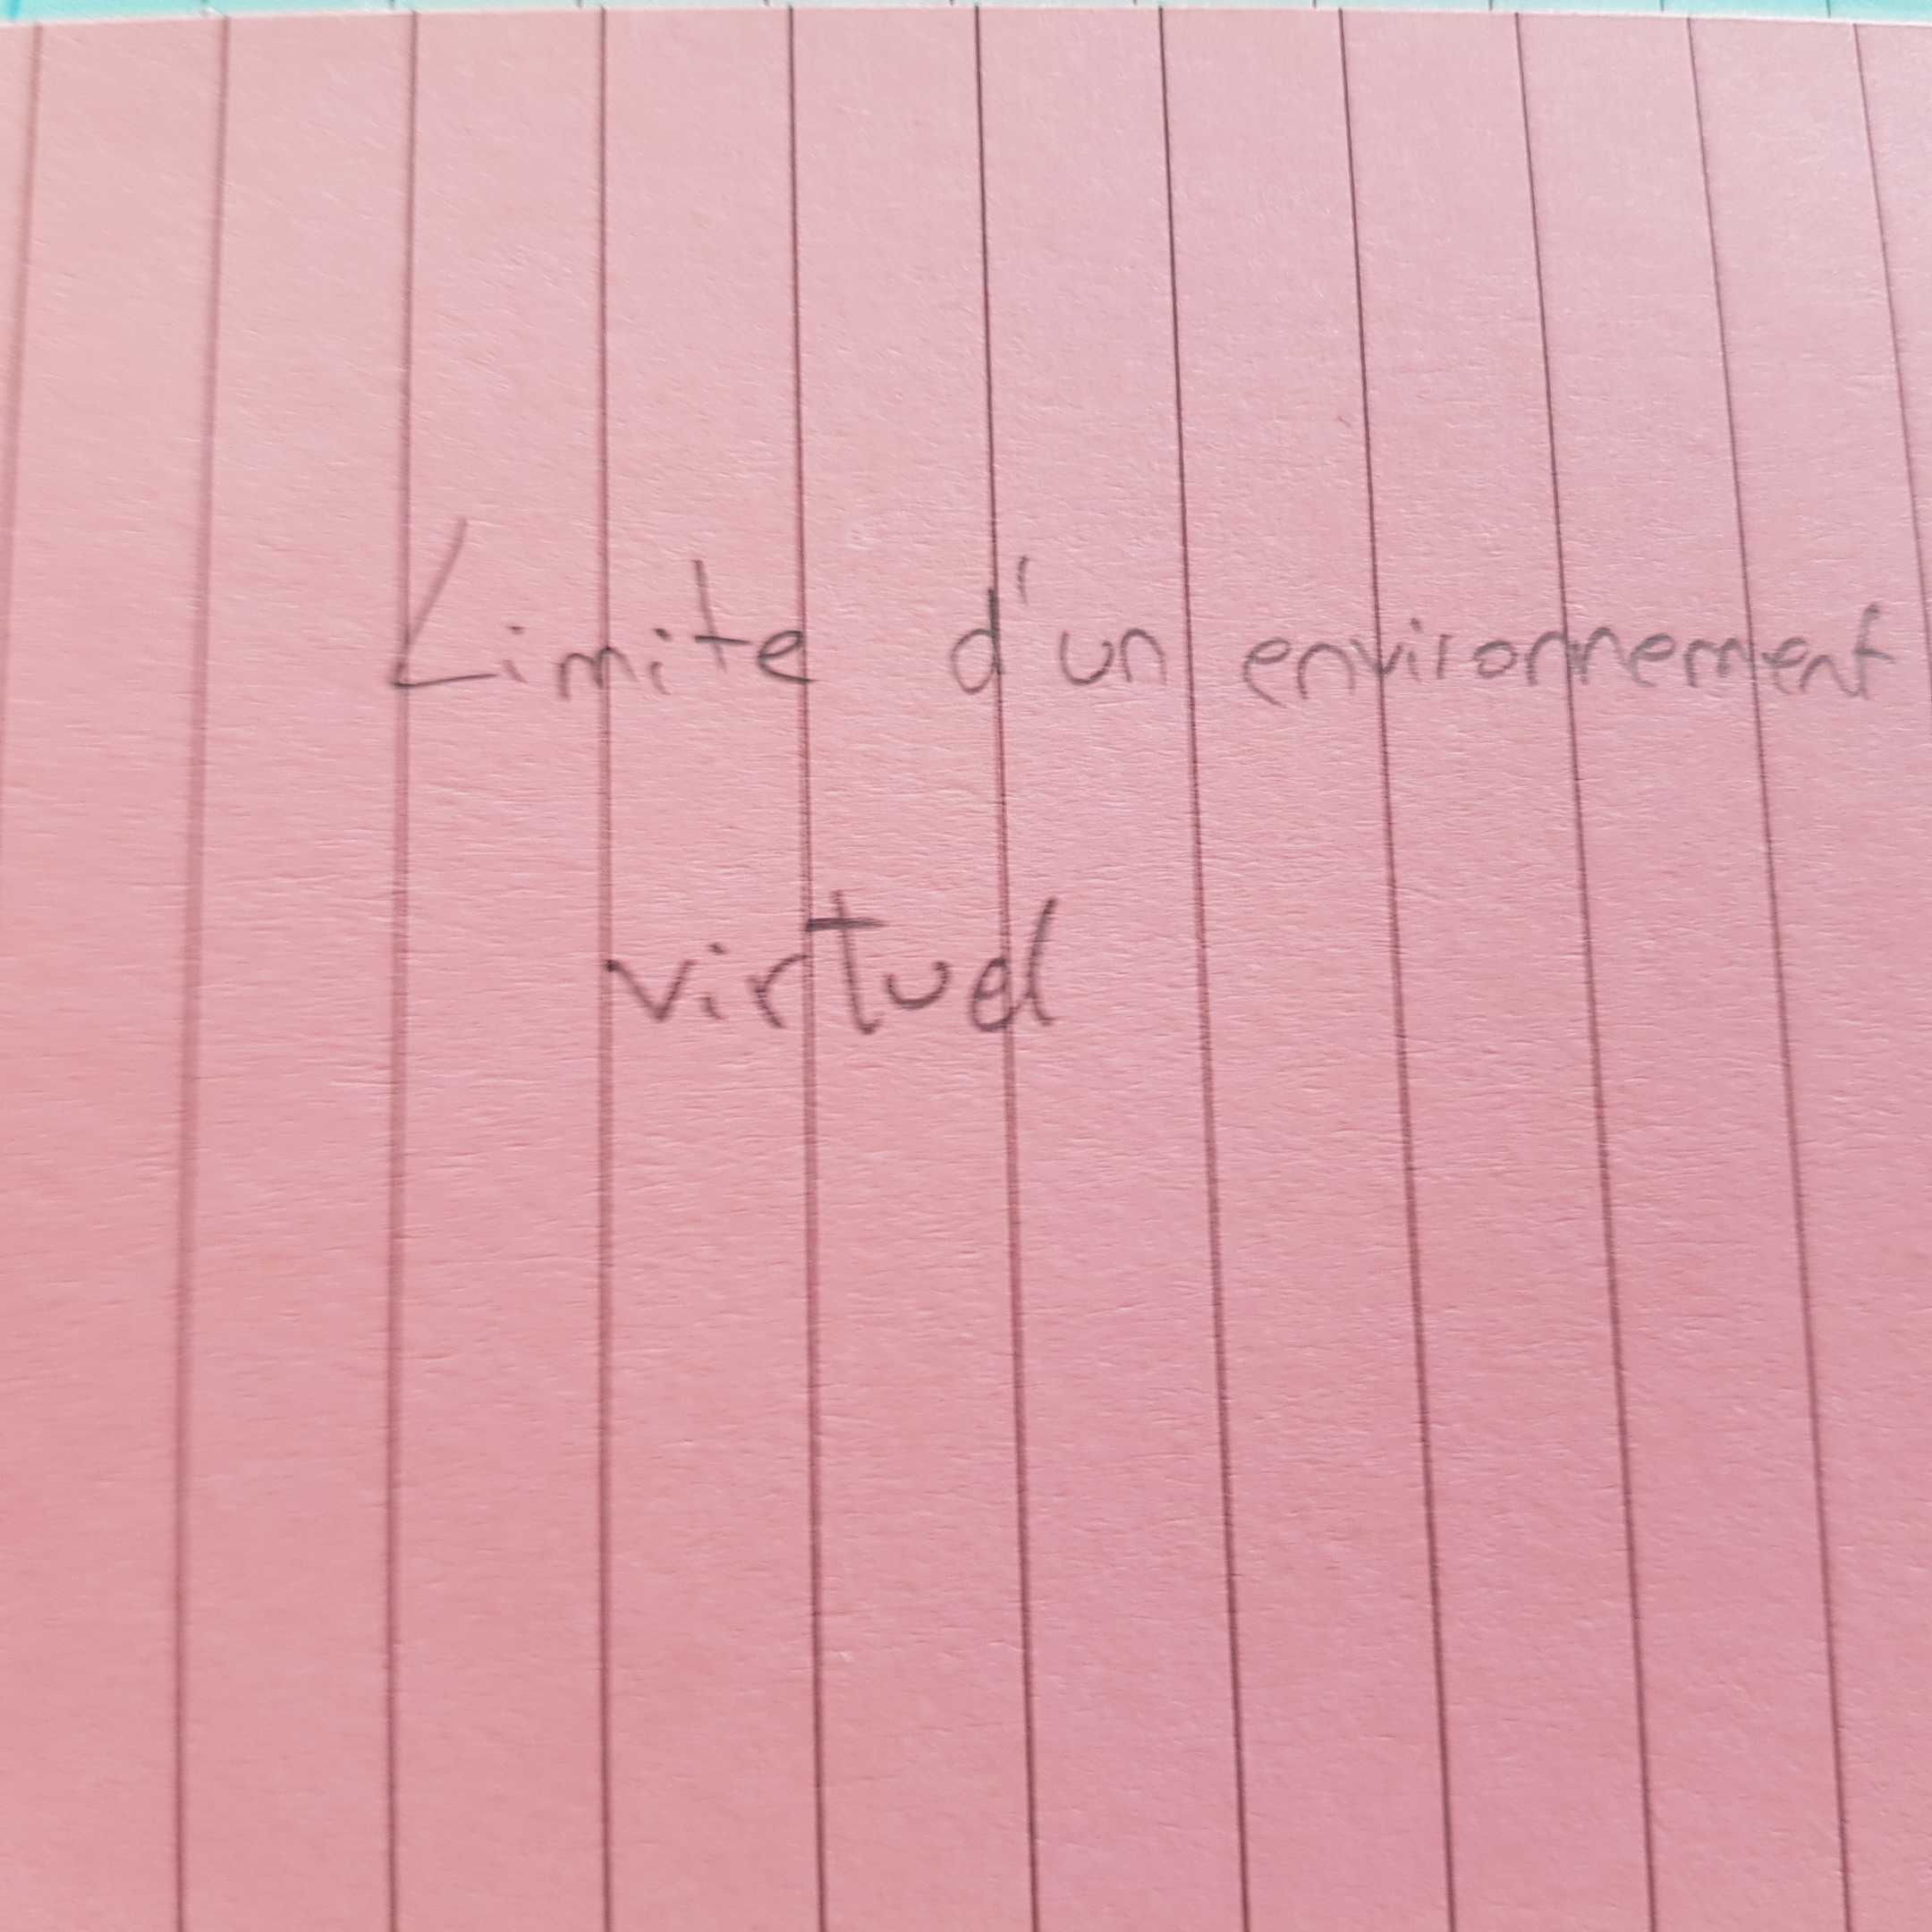 Limite d'un environnement
virtuel